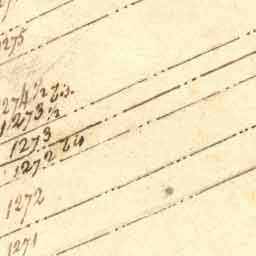 1275
1274 ½ bis
1273 ½
1273
1272 bis
1272
1271